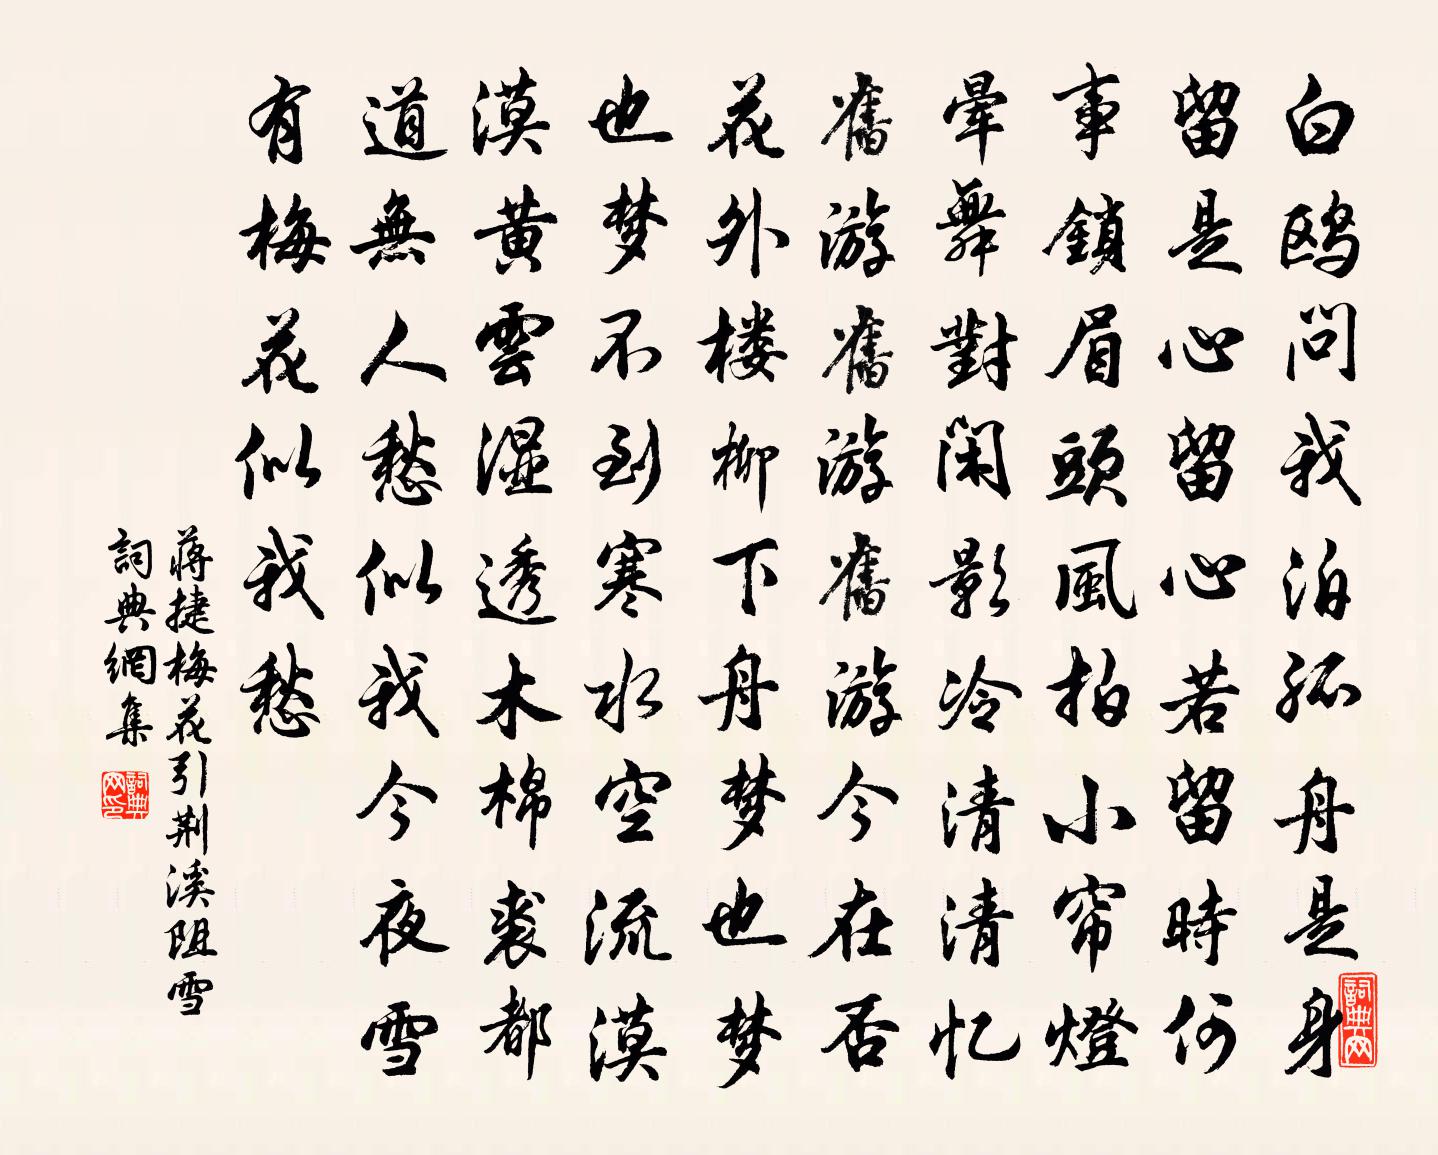 白鸥問我泊孤舟是身
留是心留心若留時何
事鎖眉頭風拍小帘燈
暈舞對闲影冷清清忆
舊游舊游舊游今在否
花外楼柳下舟梦也梦
也梦不到寒水空流漠
漠黄雲湿透木棉裘都
道無人愁似我今夜雪
有梅花似我愁
蒋捷梅花引荆溪阻雪
詞典網集
詞典网
詞典网印